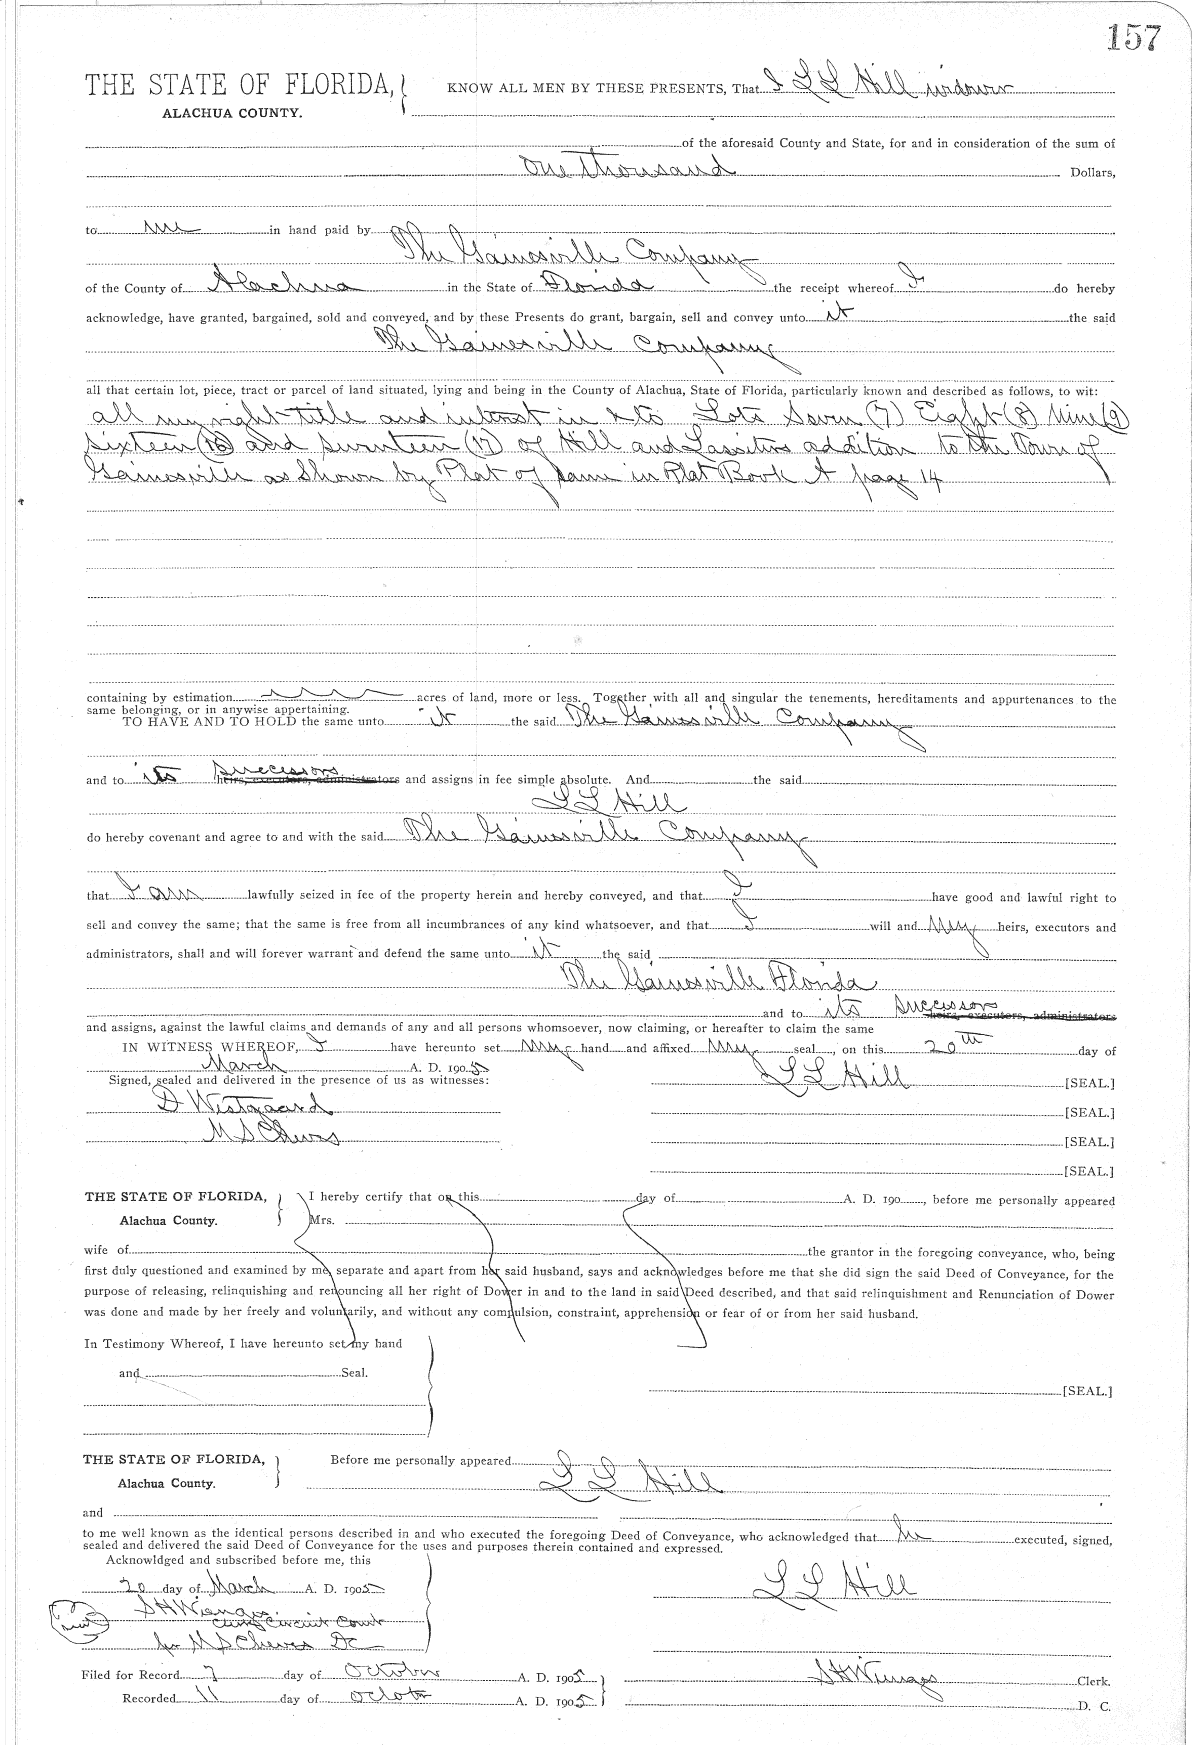 157
THE STATE OF FLORIDA,
ALACHUA COUNTY.
KNOW ALL MEN BY THESE PRESENTS, That I L L Hill widower
of the aforesaid County and State, for and in consideration of the sum of
One thousand Dollars,
to me in hand paid by
The Gainesville Company
of the County of Alachua in the State of Florida the receipt whereof I do hereby
acknowledge, have granted, bargained, sold and conveyed, and by these Presents do grant, bargain, sell and convey unto it the said
The Gainesville Company
all that certain lot, piece, tract or parcel of land situated, lying and being in the County of Alachua, State of Florida, particularly known and described as follows, to wit:
all my right title and interest in & to Lots Seven (7) Eight (8) Nine (9)
Sixteen (16) and Seventeen (17) of Hill and Lassiters addition to the Town of
Gainesville as Shown by Plat of same in Plat Book A page 14
containing by estimation acres of land, more or less. Together with all and singular the tenements, hereditaments and appurtenances to the
same belonging, or in anywise appertaining.
TO HAVE AND TO HOLD the same unto it the said The Gainesville Company
and to its Successors heirs, executors, administrators and assigns in fee simple absolute. And the said
L L Hill
do hereby covenant and agree to and with the said The Gainesville Company
that I am lawfully seized in fee of the property herein and hereby conveyed, and that I have good and lawful right to
sell and convey the same; that the same is free from all incumbrances of any kind whatsoever, and that I will and My heirs, executors and
administrators, shall and will forever warrant and defend the same unto it the said
The Gainesville Florida
and to its Successors heirs, executors, administrators
and assigns, against the lawful claims and demands of any and all persons whomsoever, now claiming, or hereafter to claim the same
IN WITNESS WHEREOF, I have hereunto set My hand and affixed My seal, on this 20th day of
March A. D. 1905
Signed, sealed and delivered in the presence of us as witnesses:
L L Hill [SEAL.]
D Westgaard [SEAL.]
M S Cheves [SEAL.]
[SEAL.]
THE STATE OF FLORIDA,
Alachua County.
I hereby certify that on this day of A. D. 190 , before me personally appeared
Mrs.
wife of the grantor in the foregoing conveyance, who, being
first duly questioned and examined by me, separate and apart from her said husband, says and acknowledges before me that she did sign the said Deed of Conveyance, for the
purpose of releasing, relinquishing and renouncing all her right of Dower in and to the land in said Deed described, and that said relinquishment and Renunciation of Dower
was done and made by her freely and voluntarily, and without any compulsion, constraint, apprehension or fear of or from her said husband.
In Testimony Whereof, I have hereunto set my hand
and Seal.
[SEAL.]
THE STATE OF FLORIDA,
Alachua County.
Before me personally appeared
L L Hill
and
to me well known as the identical persons described in and who executed the foregoing Deed of Conveyance, who acknowledged that he executed, signed,
sealed and delivered the said Deed of Conveyance for the uses and purposes therein contained and expressed.
Acknowldged and subscribed before me, this
20 day of March A. D. 1905
L L Hill
S H Wienges
Clerk Circuit Court
per M S Cheves DC
Filed for Record 7 day of October A. D. 1905
S H Wienges Clerk.
Recorded 11 day of October A. D. 1905
D. C.